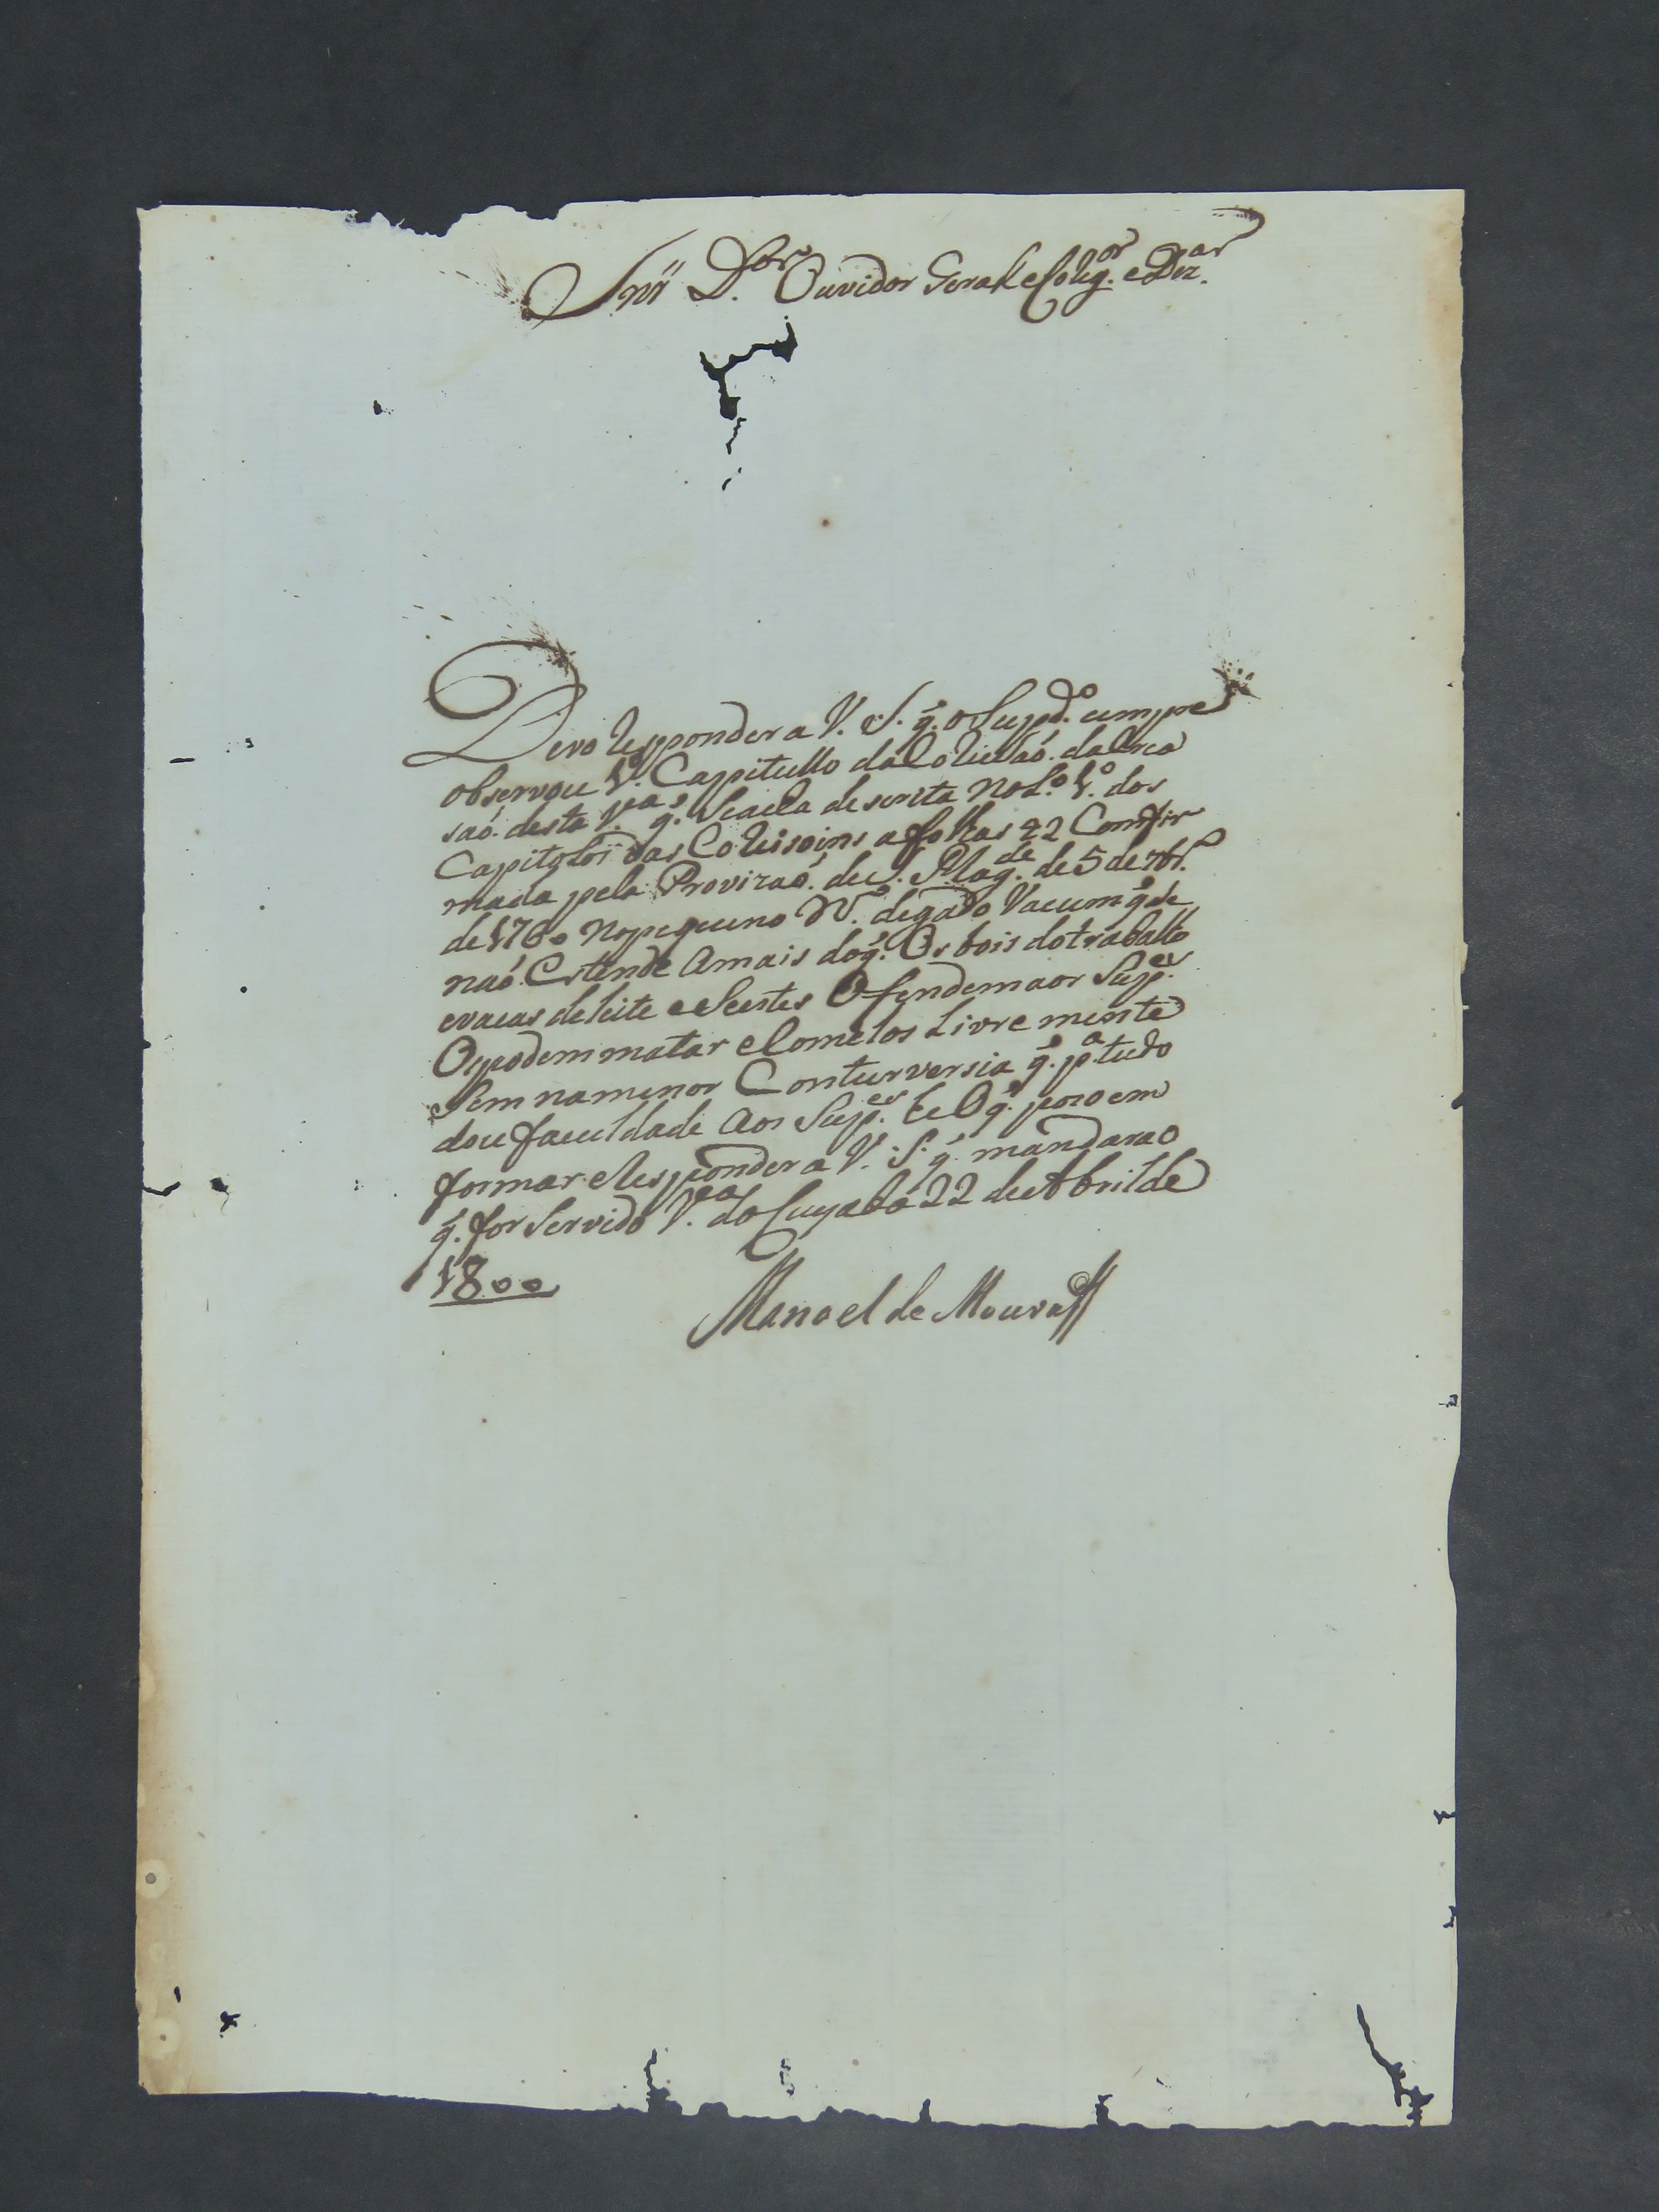 Snr̃ D.or Ouvidor Geral e Correg.or e Dez.ar
Devo responder a V. S. q̃. o Supd.o cumpre
observou 1.o Capitullo da Correisaõ. da
saõ. desta V.a q̃. Se acha descrita no L.o 1.o dos
Capitolos das Correisoins a folhas 22 Comfir
mada pela Provizaõ. de S. Mag.de de 5 de 7br.o
de 1760 No pequeno N.o de gado Vacum q̃. de
naõ. Estende a mais do q̃. Os bois do trabalho
e vacas de leite e Se estes Ofendem aos Sup.es
O podem matar e Comelos Livremente
Sem na menor Conturversia q̃. p.a tudo
dou faculdade Aos Sup.es he O q̃. poso em
formar e Responder a V. S. q̃. mandara o
q̃. for Servido V.a do Cuyabá 22 de Abril de
1800
Manoel de Moura